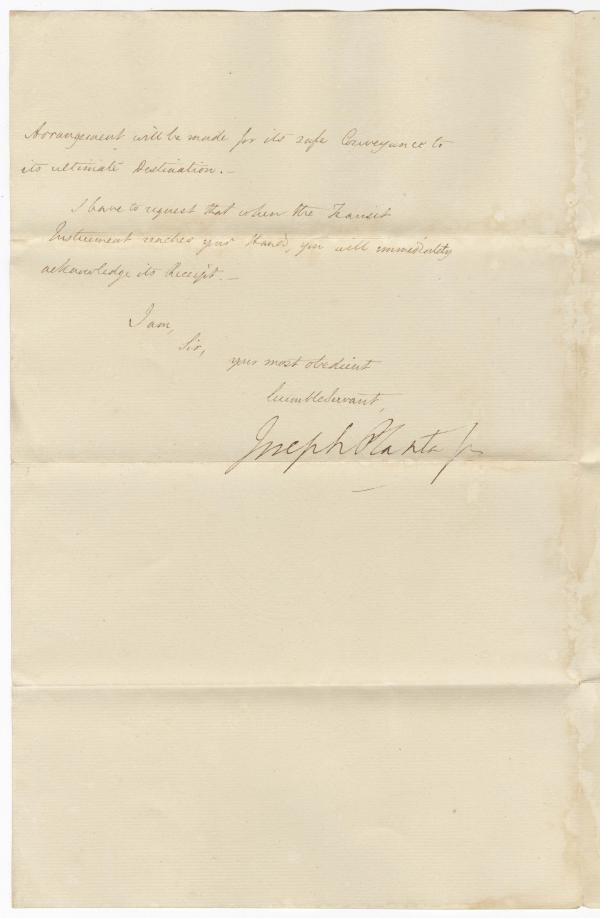 Arrangement will be made for its safe Conveyance to
its ultimate Destination.—
I have to request that when the Transit
Instrument reaches your Hands, you will immediately
acknowledge its Receipt.—
I am,
Sir,
your most obedient
humble Servant,
Joseph Planta Jr